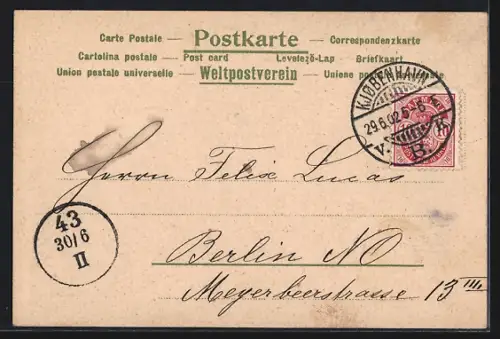 Carte Postale — Postkarte — Correspondenzkarte
Cartolina postale — Post card Levelező-Lap — Briefkaart
Union postale universelle — Weltpostverein — Unione postale
KJØBENHAVN
29.6.02.5-6
V. B. K
Herrn Felix Lucas
43
30/6
II
Berlin NO
Meyerbeerstrasse 13 III